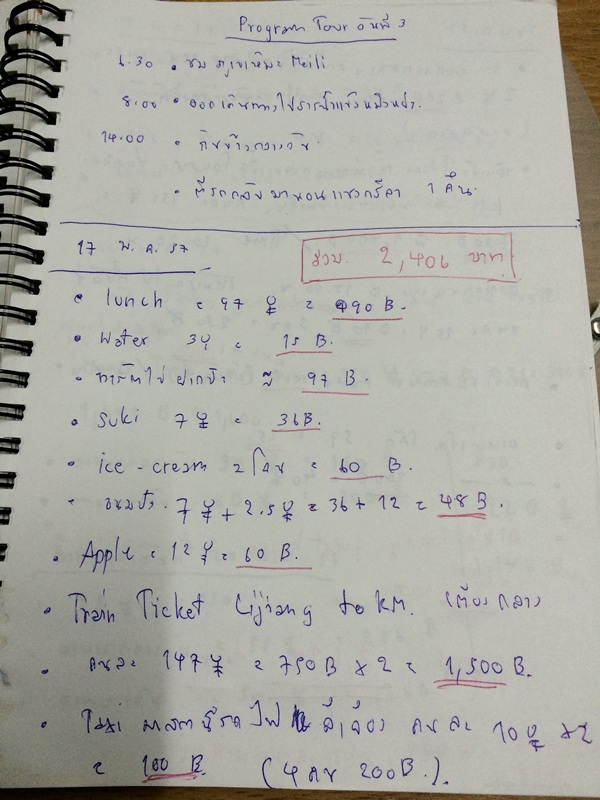 Program Tour วันที่ 3
6.30 • ชม ภูเขาหิมะ Meili
8.00 • ออกเดินทางไป
14.00 • กินข้าวกลางวัน
• ตีรถกลับมานอนแชงกรีล่า 1 คืน
17 พ.ค. 57
รวม. 2,406 บาท
• lunch = 97 ¥ = 490 B.
• Water 3¥ = 15 B.
• ≈ 97 B.
• Suki 7 ¥ = 36B.
• ice-cream 2 โคน = 60 B.
• ขนมปัง. 7 ¥ + 2.5 ¥ = 36 + 12 = 48 B.
• Apple = 12 ¥ = 60 B.
• Train Ticket Lijiang to KM. เตียงกลาง
• คนละ 147 ¥ = 750 B x 2 = 1,500 B.
• Taxi มาสถานีรถไฟ ลี่เจียง คนละ 10 ¥ x2
= 100 B. (4 คน 200B.).